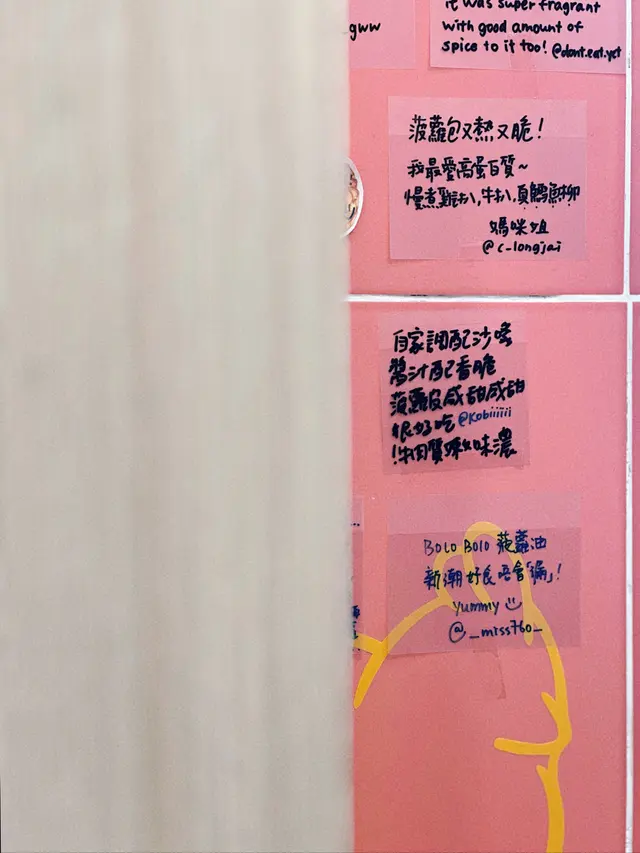 gww
it was super fragrant
with good amount of
spice to it too! @dont.eat.yet
菠蘿包又熱又脆!
我最愛高蛋白質~
慢煮雞扒,牛扒,真鱈魚柳
媽咪姐
@c-longjai
自家調配沙嗲
醬汁配香脆
菠蘿皮咸甜咸甜
很好吃 @Kobiiiiii
!牛肉質嫩味濃
BOLO BOLO 菠蘿油
新潮好食唔會「漏」!
yummy
@_miss760_